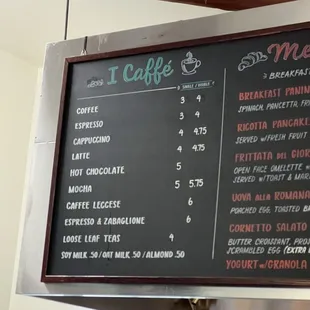 I Caffé
SINGLE / DOUBLE
COFFEE 3 4
ESPRESSO 3 4
CAPPUCCINO 4 4.75
LATTE 4 4.75
HOT CHOCOLATE 5
MOCHA 5 5.75
CAFFEE LECCESE 6
ESPRESSO & ZABAGLIONE 6
LOOSE LEAF TEAS 4
SOY MILK .50/OAT MILK .50/ALMOND .50
Me
BREAKFAST
BREAKFAST PANIN
SPINACH, PANCETTA, FR
RICOTTA PANCAKE
SERVED W/FRESH FRUIT
FRITTATA DEL GIOR
OPEN FACE OMELETTE W
SERVED W/TOAST & MAR
UOVA ALLA ROMANA
POACHED EGG, TOASTED BA
CORNETTO SALATO
BUTTER CROISSANT, PROS
SCRAMBLED EGG (EXTRA
YOGURT W/GRANOLA